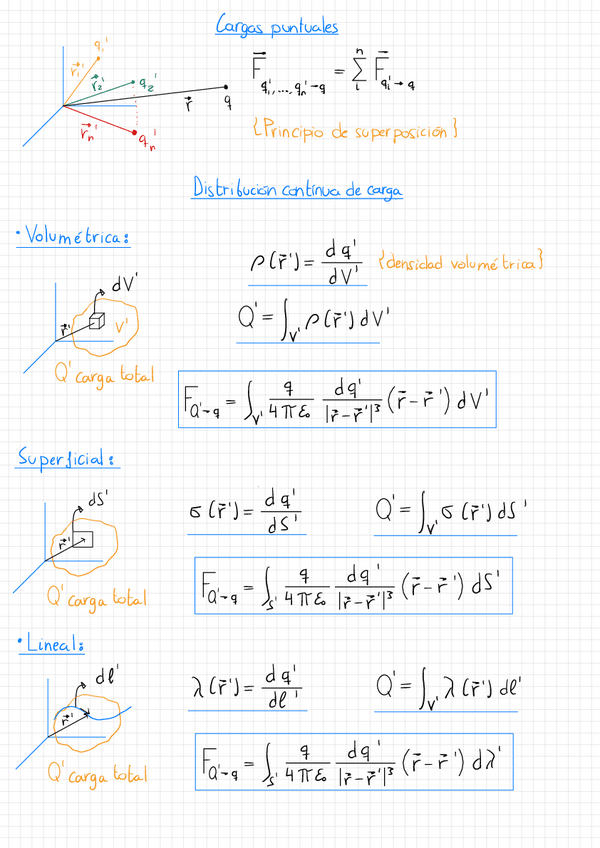 Cargas puntuales
q₁' r⃗₁' r⃗₂' q₂' r⃗ q r⃗ₙ' qₙ'
F⃗_{q₁',...,qₙ'→q} = Σᵢⁿ F⃗_{qᵢ'→q}
{Principio de superposición}
Distribución continua de carga
• Volumétrica:
dV' r⃗' V'
Q' carga total
ρ(r̄') = dq'/dV' {densidad volumétrica}
Q' = ∫_{V'} ρ(r̄') dV'
F_{Q'→q} = ∫_{V'} q/4πε₀ dq'/|r̄-r̄'|³ (r̄-r̄') dV'
Superficial:
dS' r⃗'
Q' carga total
σ(r̄') = dq'/dS' Q' = ∫_{V'} σ(r̄') dS'
F_{Q'→q} = ∫_{S'} q/4πε₀ dq'/|r̄-r̄'|³ (r̄-r̄') dS'
• Lineal:
dℓ' r⃗'
Q' carga total
λ(r̄') = dq'/dℓ' Q' = ∫_{V'} λ(r̄') dℓ'
F_{Q'→q} = ∫_{S'} q/4πε₀ dq'/|r̄-r̄'|³ (r̄-r̄') dλ'